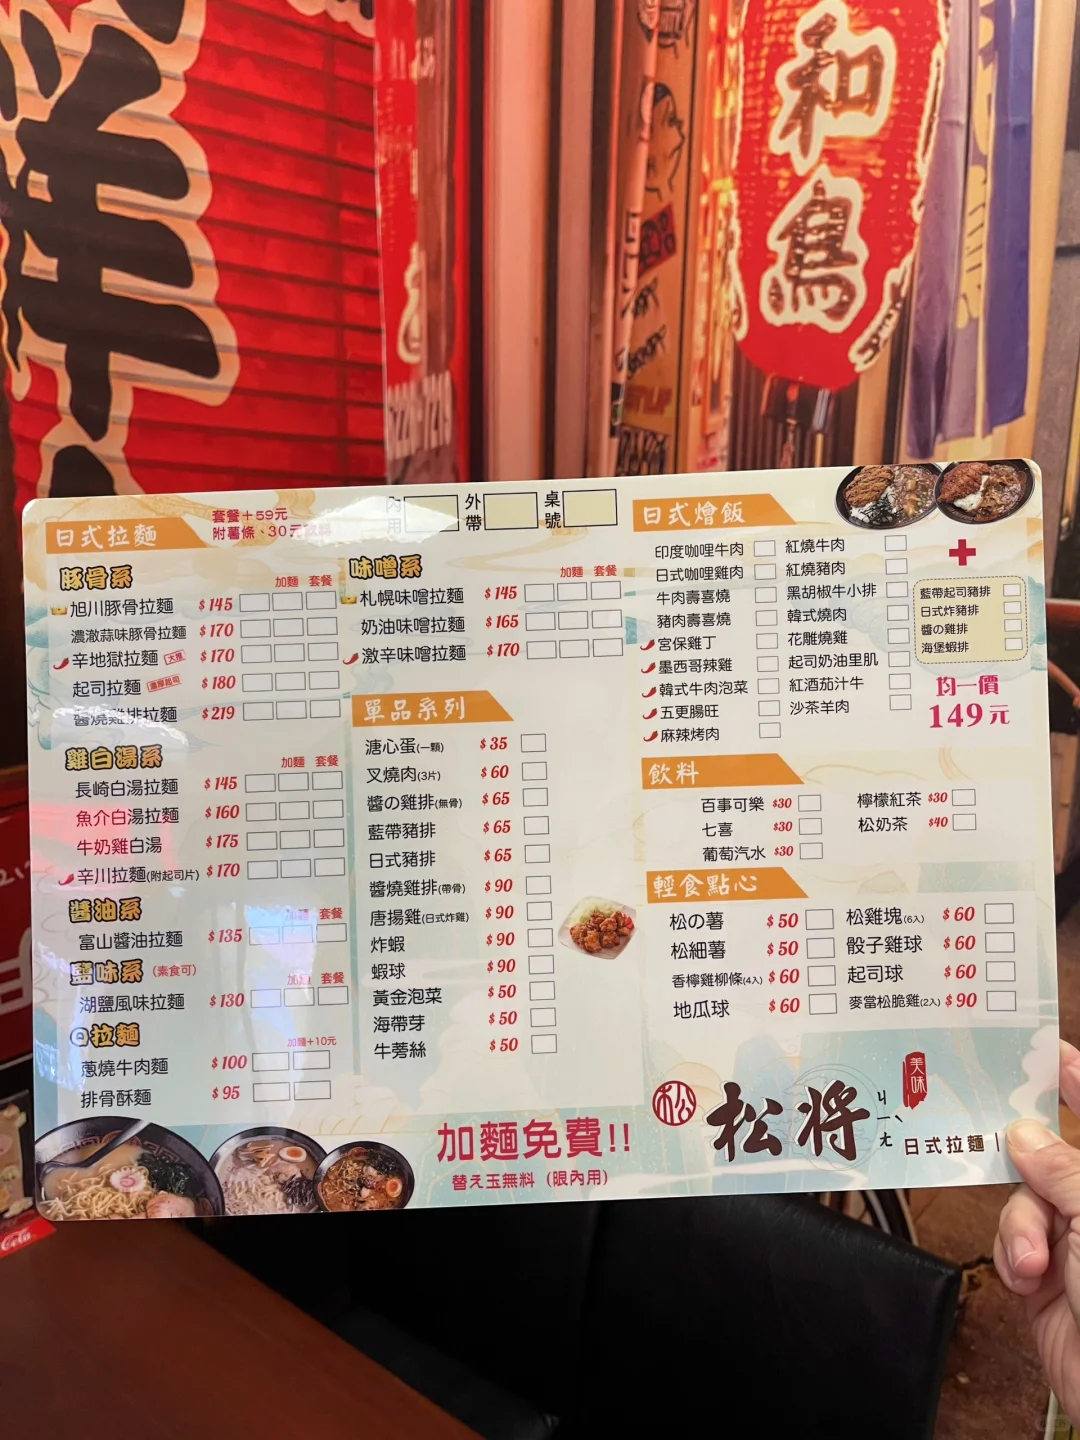 和鳥
內用
外帶
桌號
日式拉麵
套餐+59元
附薯條、30元飲料
豚骨系
加麵 套餐
旭川豚骨拉麵 $145
濃澈蒜味豚骨拉麵 $170
辛地獄拉麵 大推 $170
起司拉麵 濃厚起司 $180
醬燒雞排拉麵 $219
雞白湯系
加麵 套餐
長崎白湯拉麵 $145
魚介白湯拉麵 $160
牛奶雞白湯 $175
辛川拉麵(附起司片) $170
醬油系
加麵 套餐
富山醬油拉麵 $135
鹽味系 (素食可)
加麵 套餐
湖鹽風味拉麵 $130
拉麵
加麵+10元
蔥燒牛肉麵 $100
排骨酥麵 $95
味噌系
加麵 套餐
札幌味噌拉麵 $145
奶油味噌拉麵 $165
激辛味噌拉麵 $170
單品系列
溏心蛋(一顆) $35
叉燒肉(3片) $60
醬の雞排(無骨) $65
藍帶豬排 $65
日式豬排 $65
醬燒雞排(帶骨) $90
唐揚雞(日式炸雞) $90
炸蝦 $90
蝦球 $90
黃金泡菜 $50
海帶芽 $50
牛蒡絲 $50
加麵免費!!
替え玉無料 (眼內用)
日式燴飯
印度咖哩牛肉
日式咖哩雞肉
牛肉壽喜燒
豬肉壽喜燒
宮保雞丁
墨西哥辣雞
韓式牛肉泡菜
五更腸旺
麻辣烤肉
紅燒牛肉
紅燒豬肉
黑胡椒牛小排
韓式燒肉
花雕燒雞
起司奶油里肌
紅酒茄汁牛
沙茶羊肉
+
藍帶起司豬排
日式炸豬排
醬の雞排
海堡蝦排
均一價
149元
飲料
百事可樂 $30
七喜 $30
葡萄汽水 $30
檸檬紅茶 $30
松奶茶 $40
輕食點心
松の薯 $50
松細薯 $50
香檸雞柳條(4入) $60
地瓜球 $60
松雞塊(6入) $60
骰子雞球 $60
起司球 $60
麥當松脆雞(2入) $90
松
松將
ㄐㄧㄤˋ
美味
日式拉麵
Cola